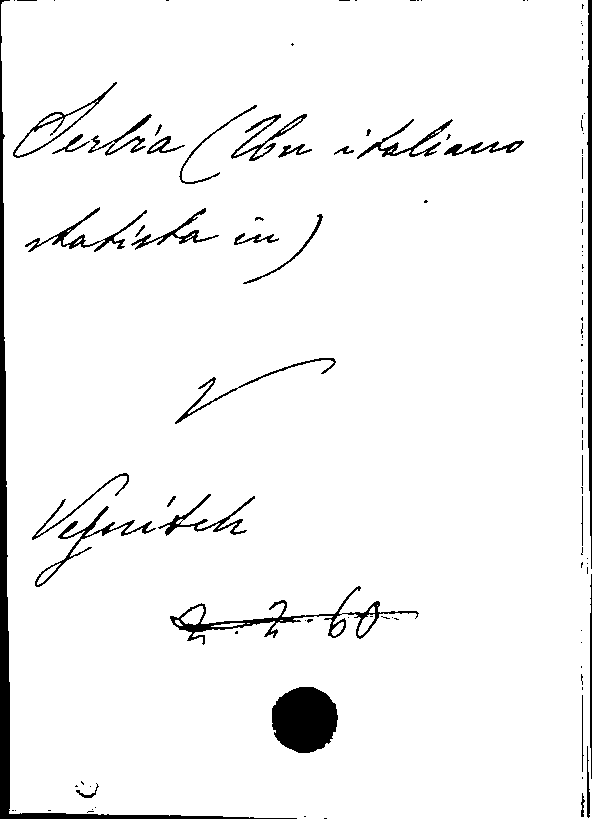 Serbia (Un italiano
statista in)
V
Vejnitch
2.2.60